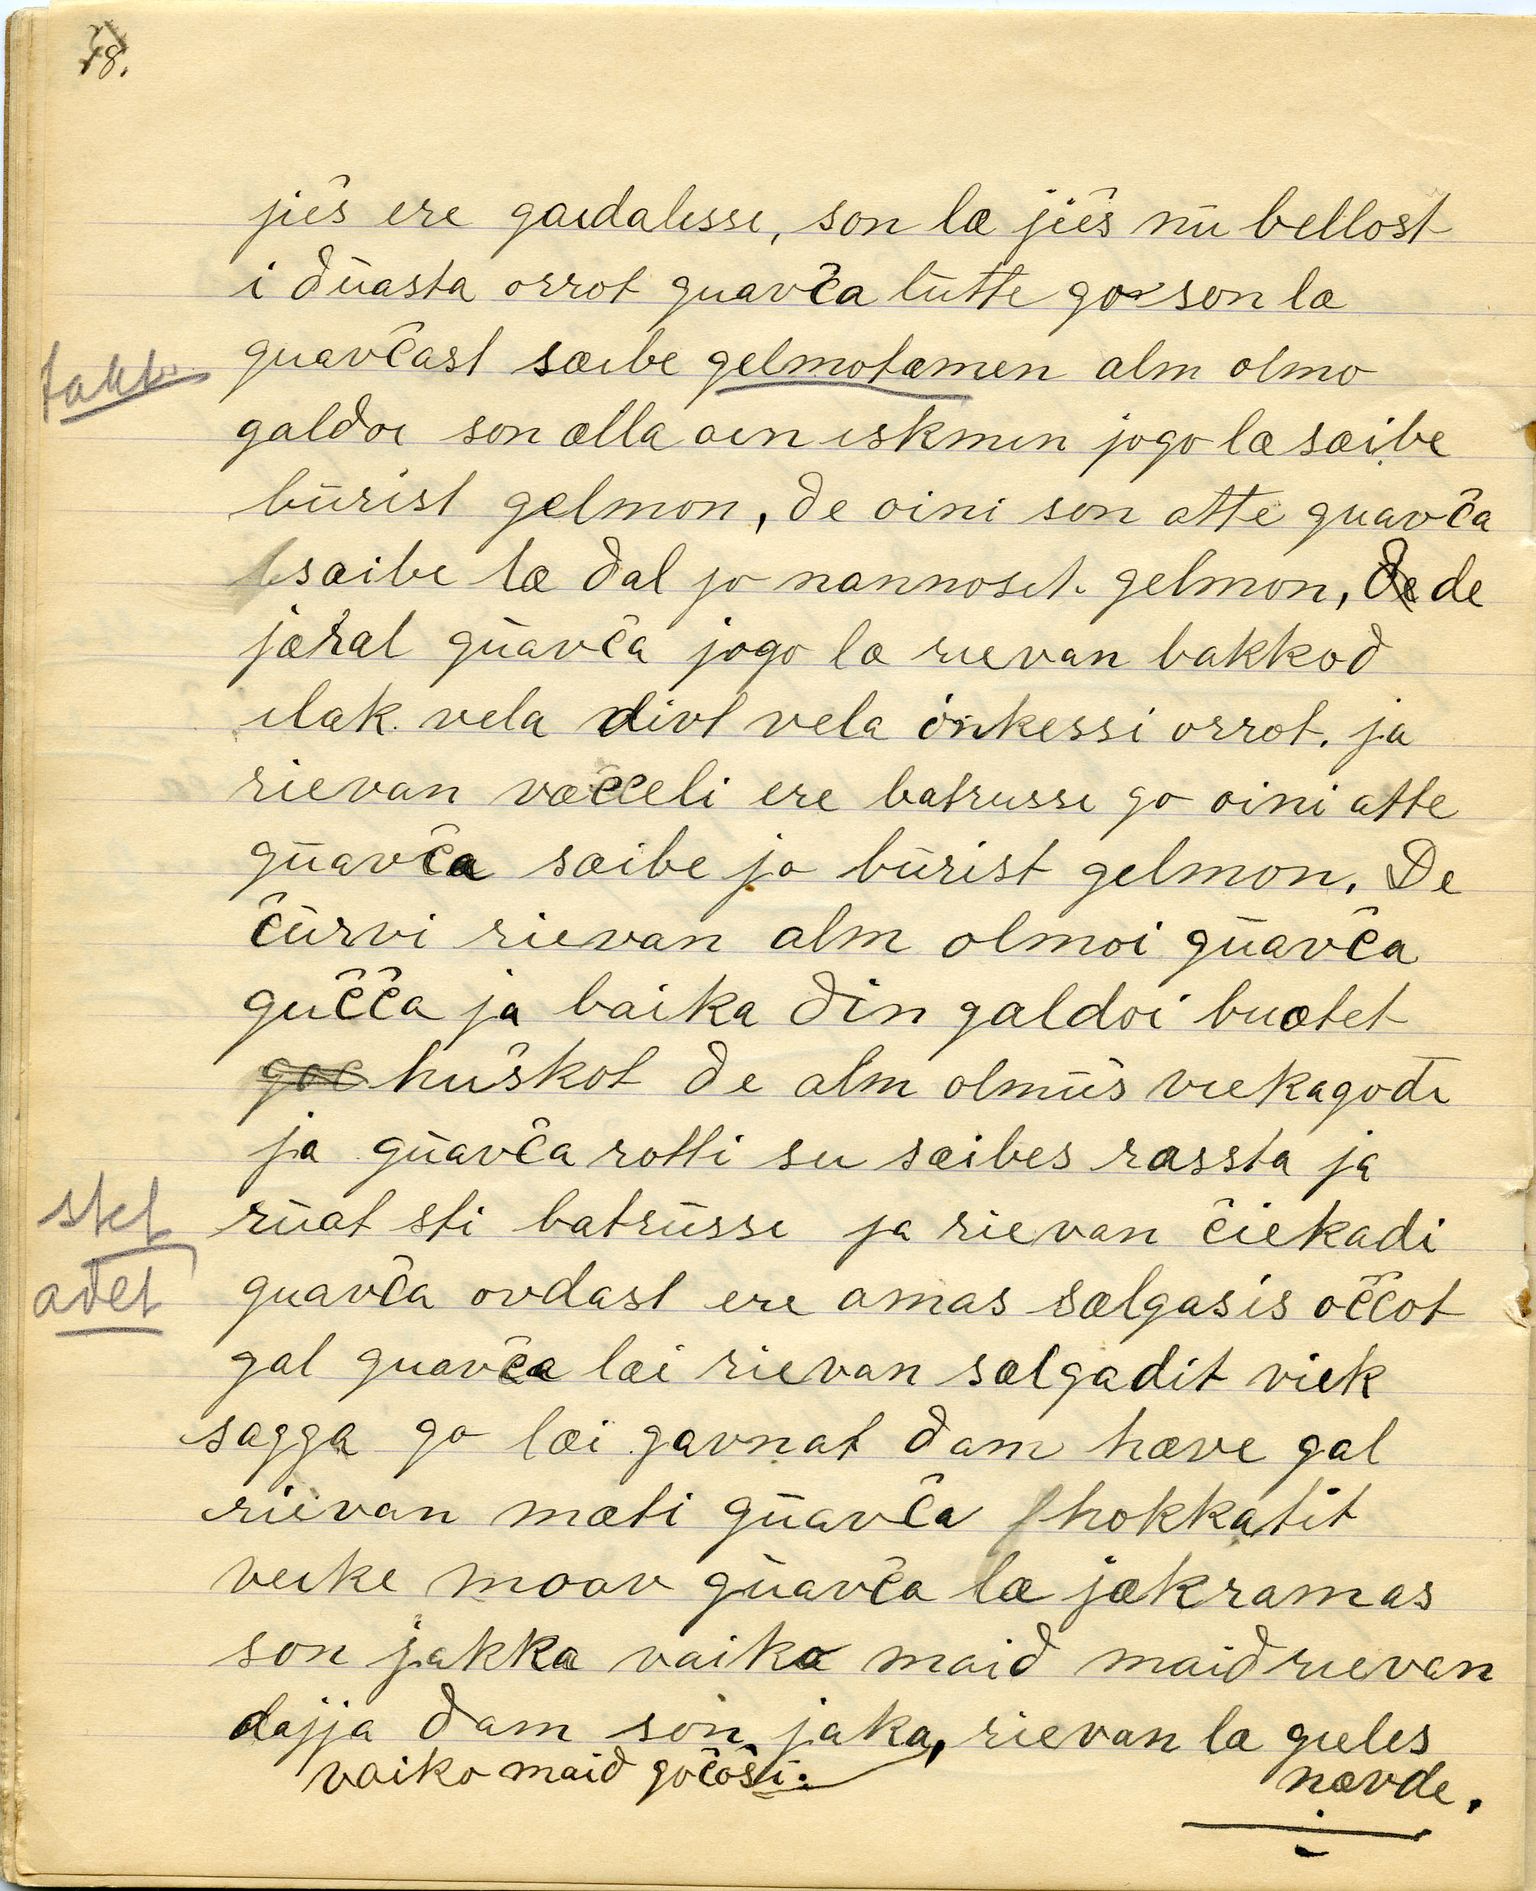 18.
jiēs ere gaidalissi, son læ jiēs nū bellost
i đūasta orrot guavča lūtte go son læ
guavčast sæibe gelmotæmen alm olmo
galđoi son ælla ain iskmin jogo læ sæibe
būrist gælmon, đe aini son atte guavča
sæibe læ đal jo nannosit. gelmon, de
jærat gūavča jogo læ rievan bakkod
ilak. vela divt vela ōnkessi orrot. ja
rievan væčceli ere batrussi go aini atte
gūavča sæibe jo būrist gelmon. De
čūrvi rievan alm olmoi gūavča
gučča ja baika đin galdoi buotet
huškot đe alm olmūs viekagođi
ja gūavča rotti su sæibes rassta ja
rūat sti batrūssi ja rievan čiekadi
guavča ovdast ere amas sælgasis oččot
gal guavča læi rievan sælgadit viek
sagga go læi gavnat đam hæve gal
rievan mæti gūavča hokkatit
veike moav gūavča læ jækramas
son jakka vaiko maid maid rievan
dajja đam son jaka, rievan la gieles
vaiko maid gočoši.
nævde.
takk
stet
adet